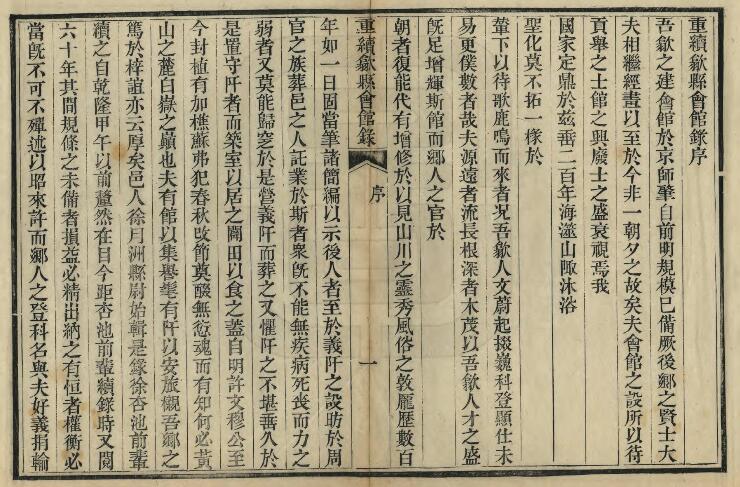 重續歙縣會館錄序
吾歙之建會館於京師肇自前明規模已備厥後鄉之賢士大
夫相繼經畫以至於今非一朝夕之故矣夫會館之設所以待
貢舉之士館之興廢士之盛衰視焉我
國家定鼎於兹垂二百年海澨山陬沐浴
聖化莫不拓一椽於
輦下以待歌鹿鳴而來者况吾歙人文蔚起掇巍科登顯仕未
易更僕數者哉夫源遠者流長根深者木茂以吾歙人才之盛
旣足增輝斯館而鄉人之官於
朝者復能代有增修於以見山川之靈秀風俗之敦龐歷數百
重續歙縣會館錄
序
一
年如一日固當筆諸簡編以示後人者至於義阡之設昉於周
官之族葬邑之人託業於斯者衆旣不能無疾病死喪而力之
弱者又莫能歸窆於是營義阡而葬之又懼阡之不堪垂久於
是置守阡者而築室以居之闢田以食之蓋自明許文穆公至
今封植有加樵蘇弗犯春秋攺節奠醊無愆魂而有知何必黃
山之麓白嶽之巔也夫有館以集譽髦有阡以安旅櫬吾鄉之
篤於梓誼亦云厚矣邑人徐月洲縣尉始輯是錄徐杏池前輩
續之自乾隆甲午以前釐然在目今距杏池前輩續錄時又閱
六十年其間規條之未備者損益必精出納之有恒者權衡必
當旣不可不殫述以昭來許而鄉人之登科名與夫好義捐輸